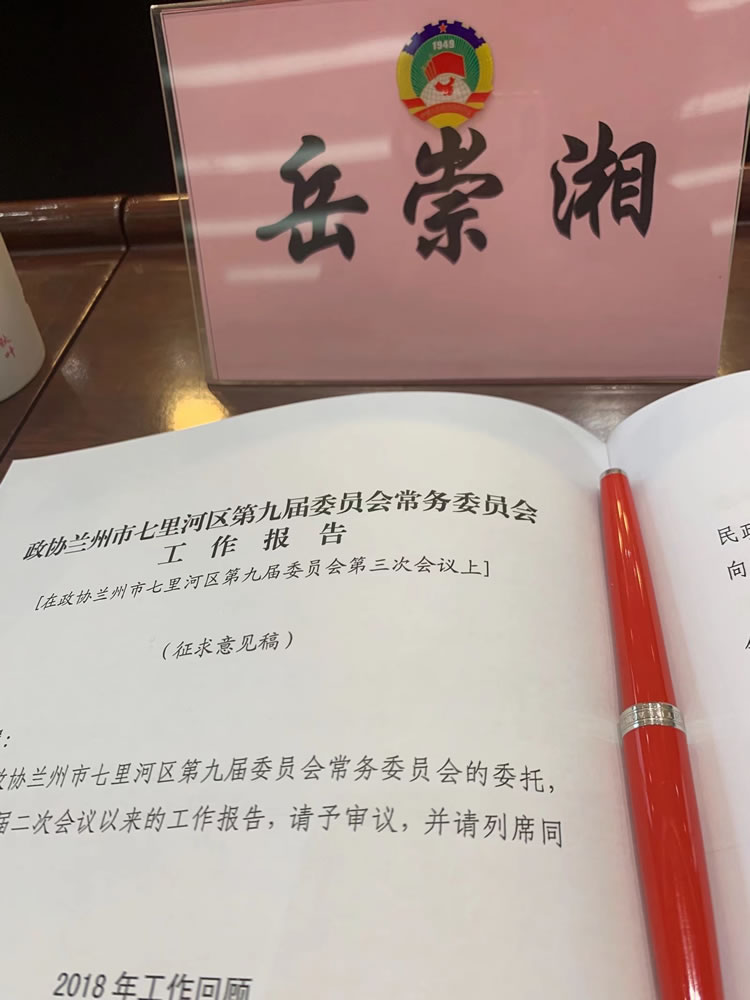 1949
岳崇湘
秋叶
政协兰州市七里河区第九届委员会常务委员会
工作报告
[在政协兰州市七里河区第九届委员会第三次会议上]
(征求意见稿)
:
政协兰州市七里河区第九届委员会常务委员会的委托,
届二次会议以来的工作报告,请予审议,并请列席同
2018年工作回顾
民政
向